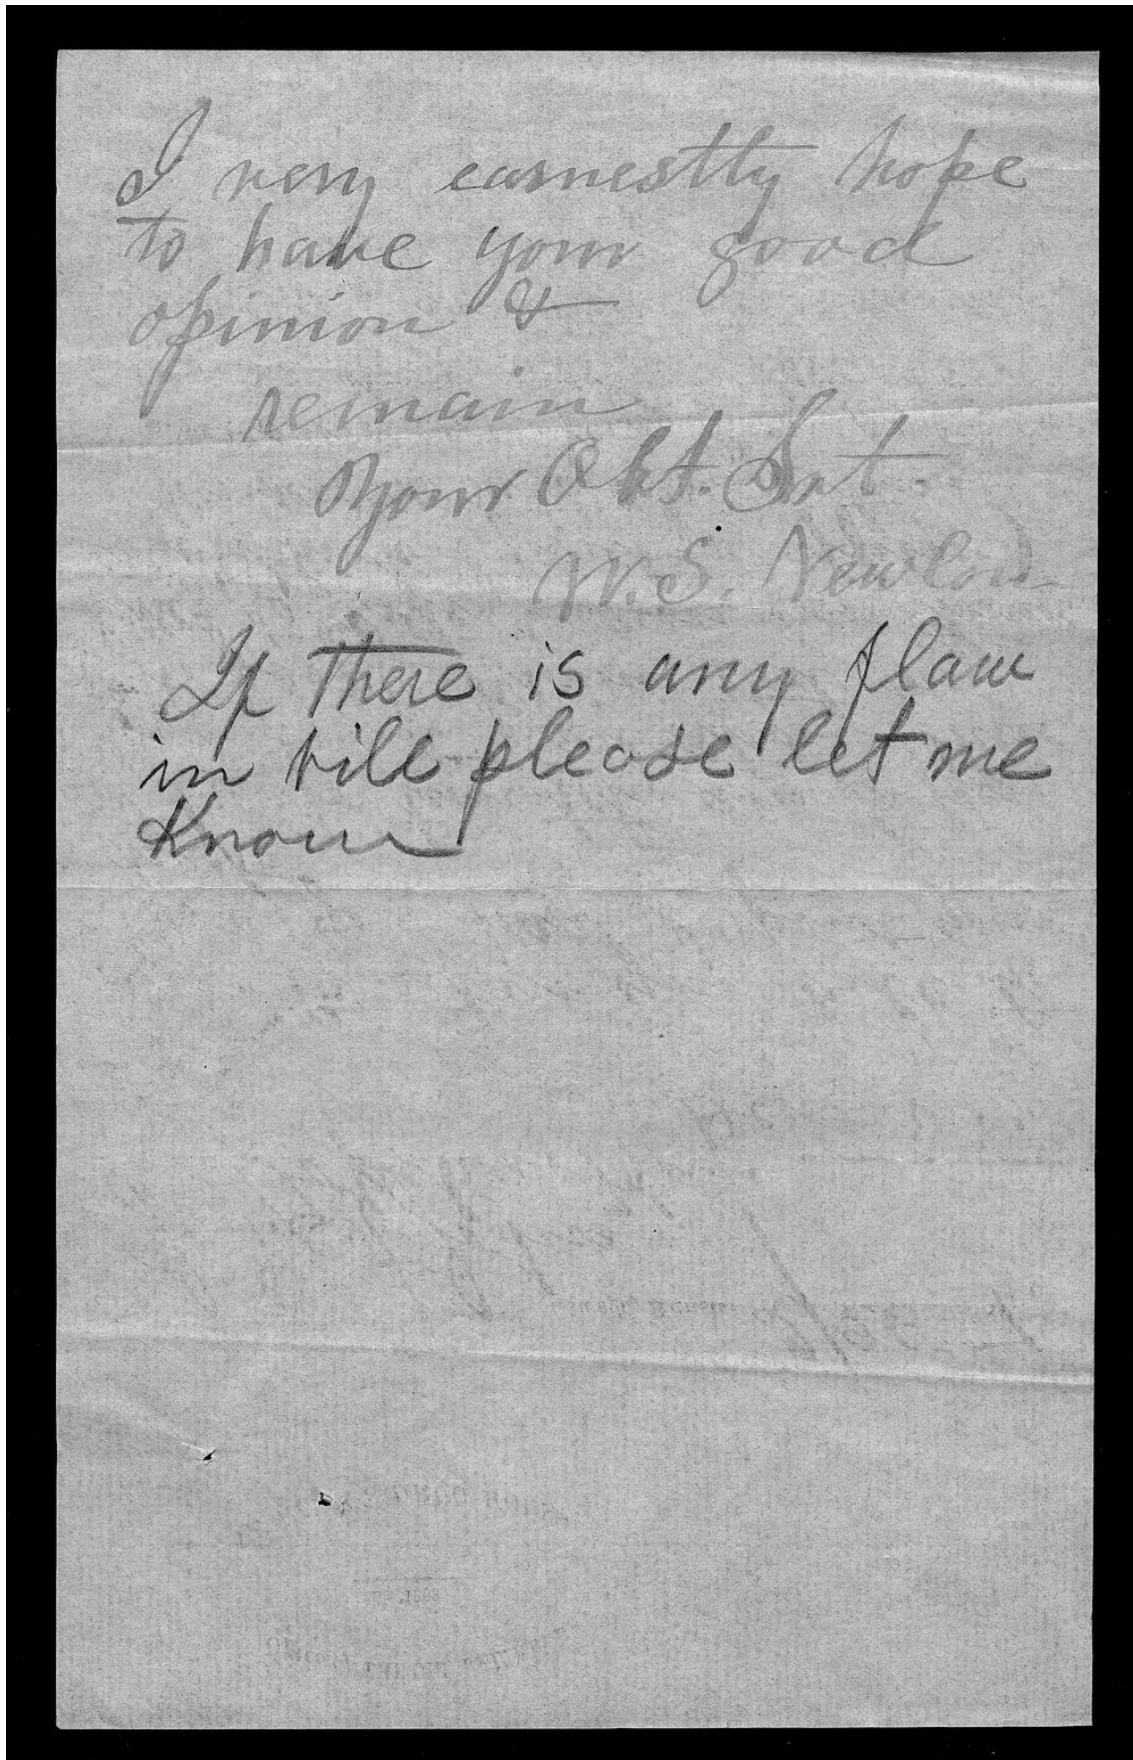 I very earnestly hope
to have your good
opinion &
remain
Your Obt. Svt.
W. S. Newlon
If there is any flaw
in bill please let me
Know